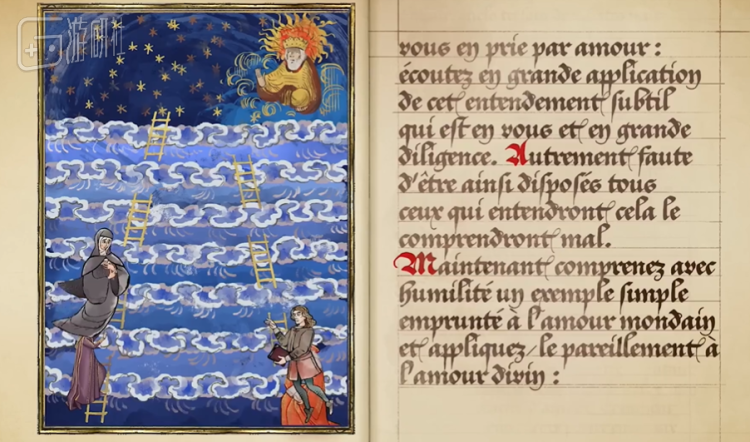 游研社
vous en prie par amour :
écoutez en grande application
de cet entendement subtil
qui est en vous et en grande
diligence. Autrement faute
d'être ainsi disposés tous
ceux qui entendront cela le
comprendront mal.
Maintenant comprenez avec
humilité un exemple simple
emprunté à l'amour mondain
et appliquez-le pareillement à
l'amour divin :